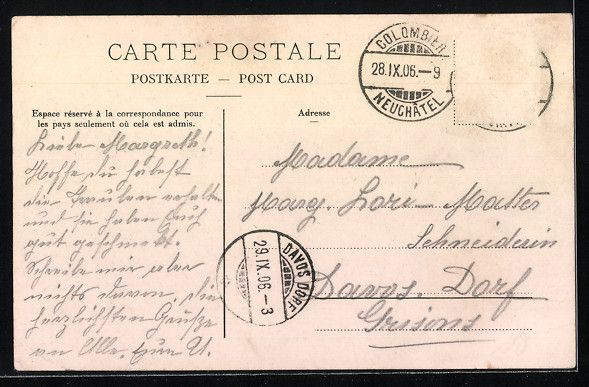 CARTE POSTALE
POSTKARTE — POST CARD
Espace réservé à la correspondance pour
les pays seulement où cela est admis.
Adresse
COLOMBIER
28.IX.06.—9
NEUCHÂTEL
Liebe Margreth!
Hoffe du habest
die Trauben erhalten
und sie haben Euch
gut geschmekt.
Schreibe mir aber
nichts davon, die
herzlichsten Grüsse
an Alle. Eure U.
Madame
Marg. Lori-Matter
Schneiderin
Davos, Dorf
Grisons
DAVOS DORF
29.IX.06.—3